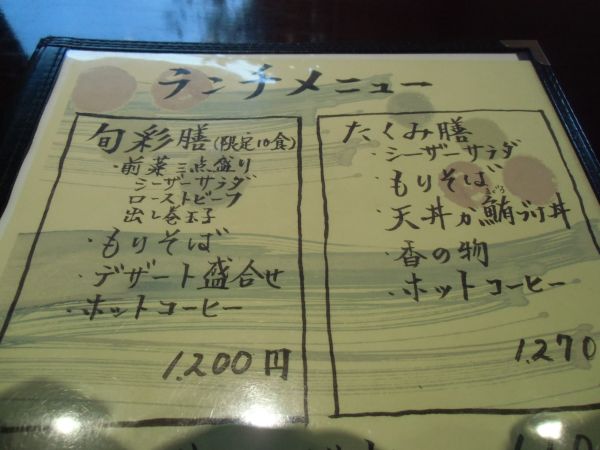 ランチメニュー
旬彩膳(限定10食)
・前菜三点盛り
シーザーサラダ
ローストビーフ
出し巻玉子
・もりそば
・デザート盛合せ
・ホットコーヒー
1,200円
たくみ膳
・シーザーサラダ
・もりそば
・天丼か鮪づけ丼
・香の物
・ホットコーヒー
1,270